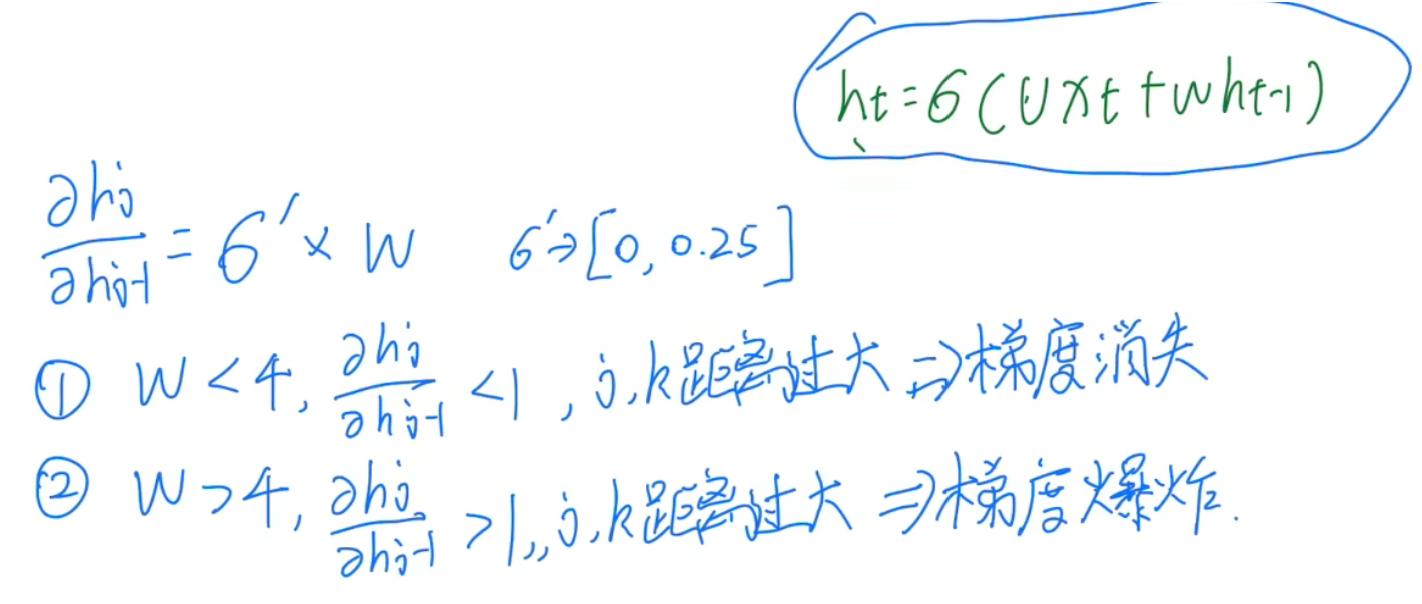 ht=σ(Uxt+wht-1)
∂hj/∂hj-1=σ′×W σ′→[0,0.25]
① W<4,∂hj/∂hj-1<1,j,k距离过大⇒梯度消失
② W>4,∂hj/∂hj-1>1,,j,k距离过大⇒梯度爆炸.